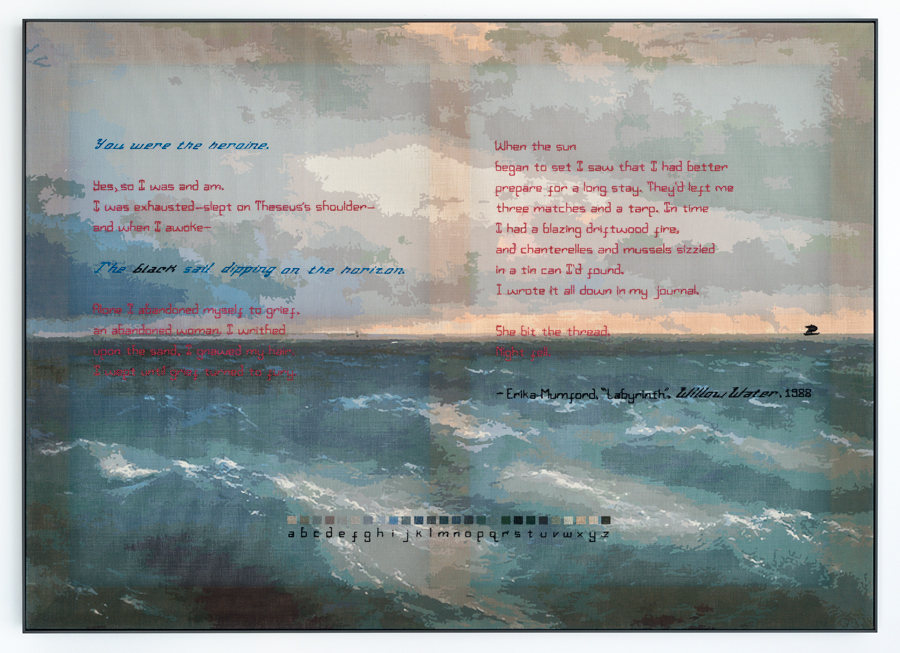 You were the heroine.
Yes, so I was and am.
I was exhausted—slept on Theseus's shoulder—
and when I awoke—
The black sail dipping on the horizon.
Alone I abandoned myself to grief,
an abandoned woman. I writhed
upon the sand. I gnawed my hair.
I wept until grief turned to fury.
When the sun
began to set I saw that I had better
prepare for a long stay. They'd left me
three matches and a tarp. In time
I had a blazing driftwood fire,
and chanterelles and mussels sizzled
in a tin can I'd found.
I wrote it all down in my journal.
She bit the thread.
Right job.
– Erika Mumford, "Labyrinth". Willow Water, 1988
a b c d e f g h i j k l m n o p q r s t u v w x y z